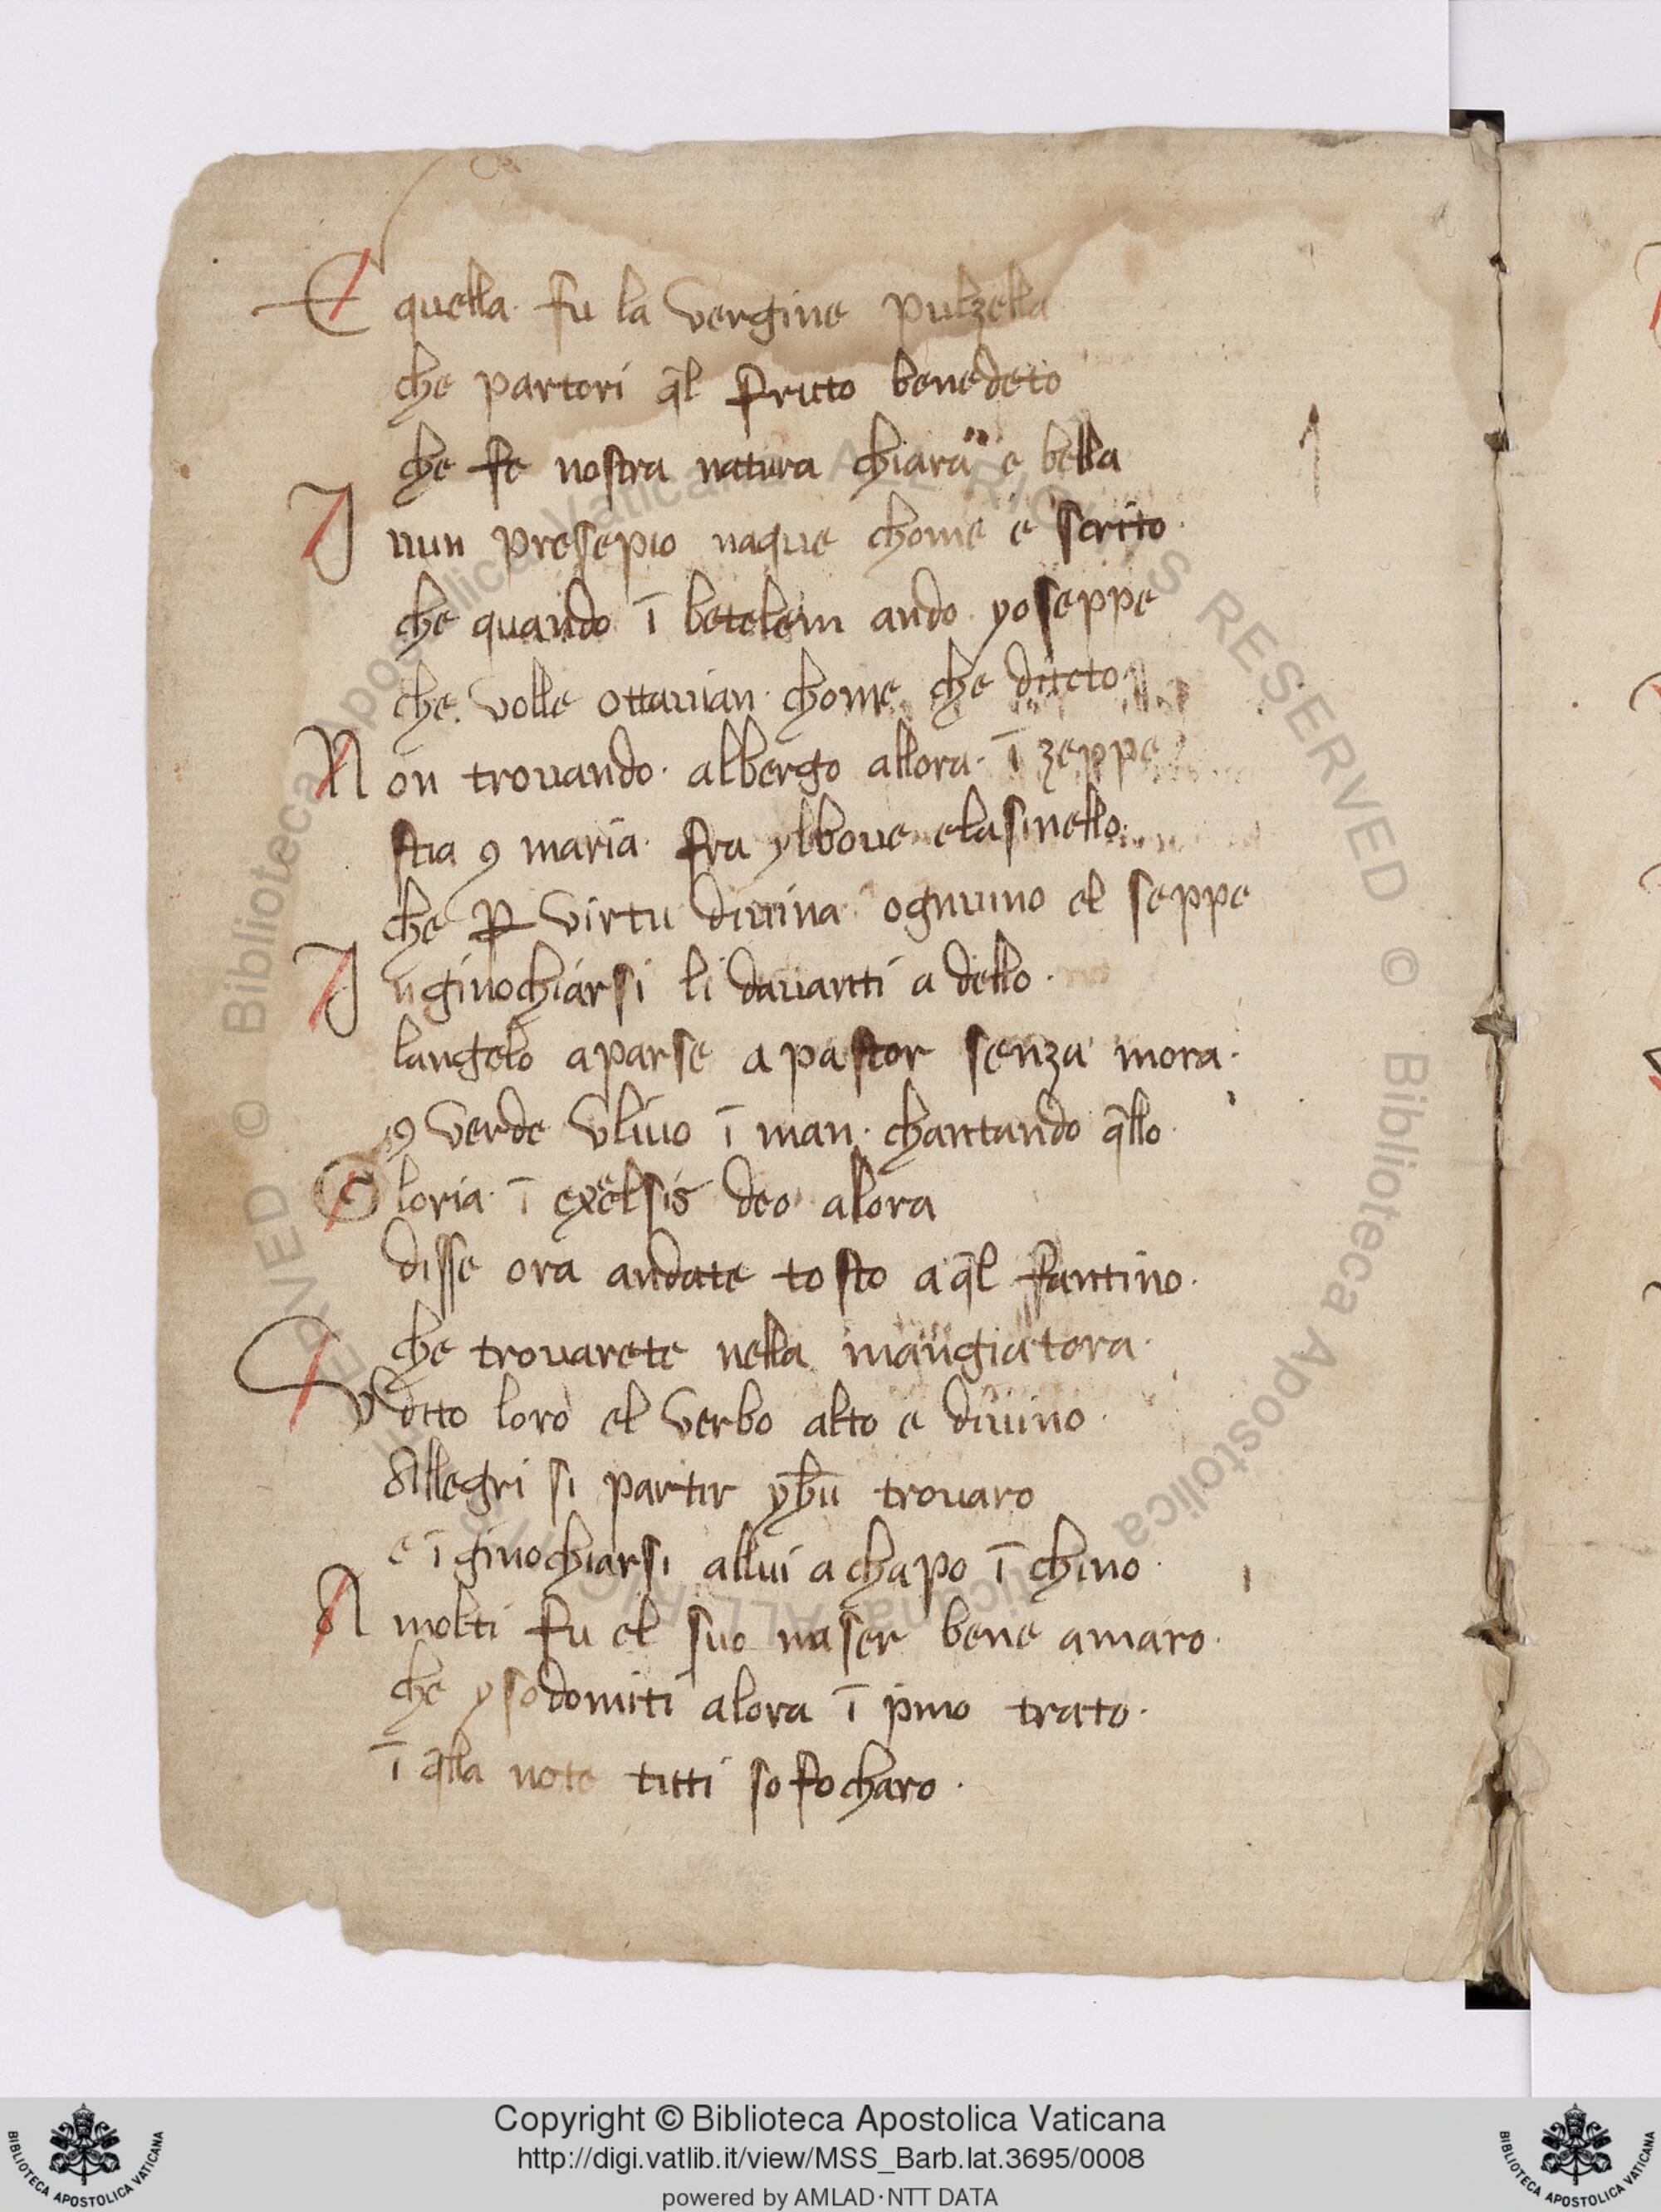 E quella fu la vergine pulzella
che partori q̄l fructo benedeto
che fe nostra natura chiara e bella
I nun presepio naque chome e scrito
che quando ī betelem ando yoseppe
che volle ottauian chome che diteto
N on trouando albergo allora ī zeppe
stia ꝯ maria fra ylboue elasinello
che ꝑ virtu diuina ognuuno el seppe
I nginochiarsi li dauanti a dello
langelo aparse a pastor senza mora
ꝯ verde vliuo ī man chantando q̄llo
G loria ī exelsis deo alora
disse ora andate tosto a q̄l fantino
che trouarete nella mangiatora
V dito loro el verbo alto e diuino
Allegri si partir trouaro
e ī ginochiarsi allui a chapo ī chino
A molti fu el suo naser bene amaro
che y sodomiti alora ī pimo trato
ī q̄lla note titti sofocharo
© Biblioteca Apostolica Vaticana ALL RIGHTS RESERVED © Biblioteca Apostolica Vaticana ALL RIGHTS RESERVED
Copyright © Biblioteca Apostolica Vaticana
http://digi.vatlib.it/view/MSS_Barb.lat.3695/0008
powered by AMLAD·NTT DATA
BIBLIOTECA APOSTOLICA VATICANA
BIBLIOTECA APOSTOLICA VATICANA